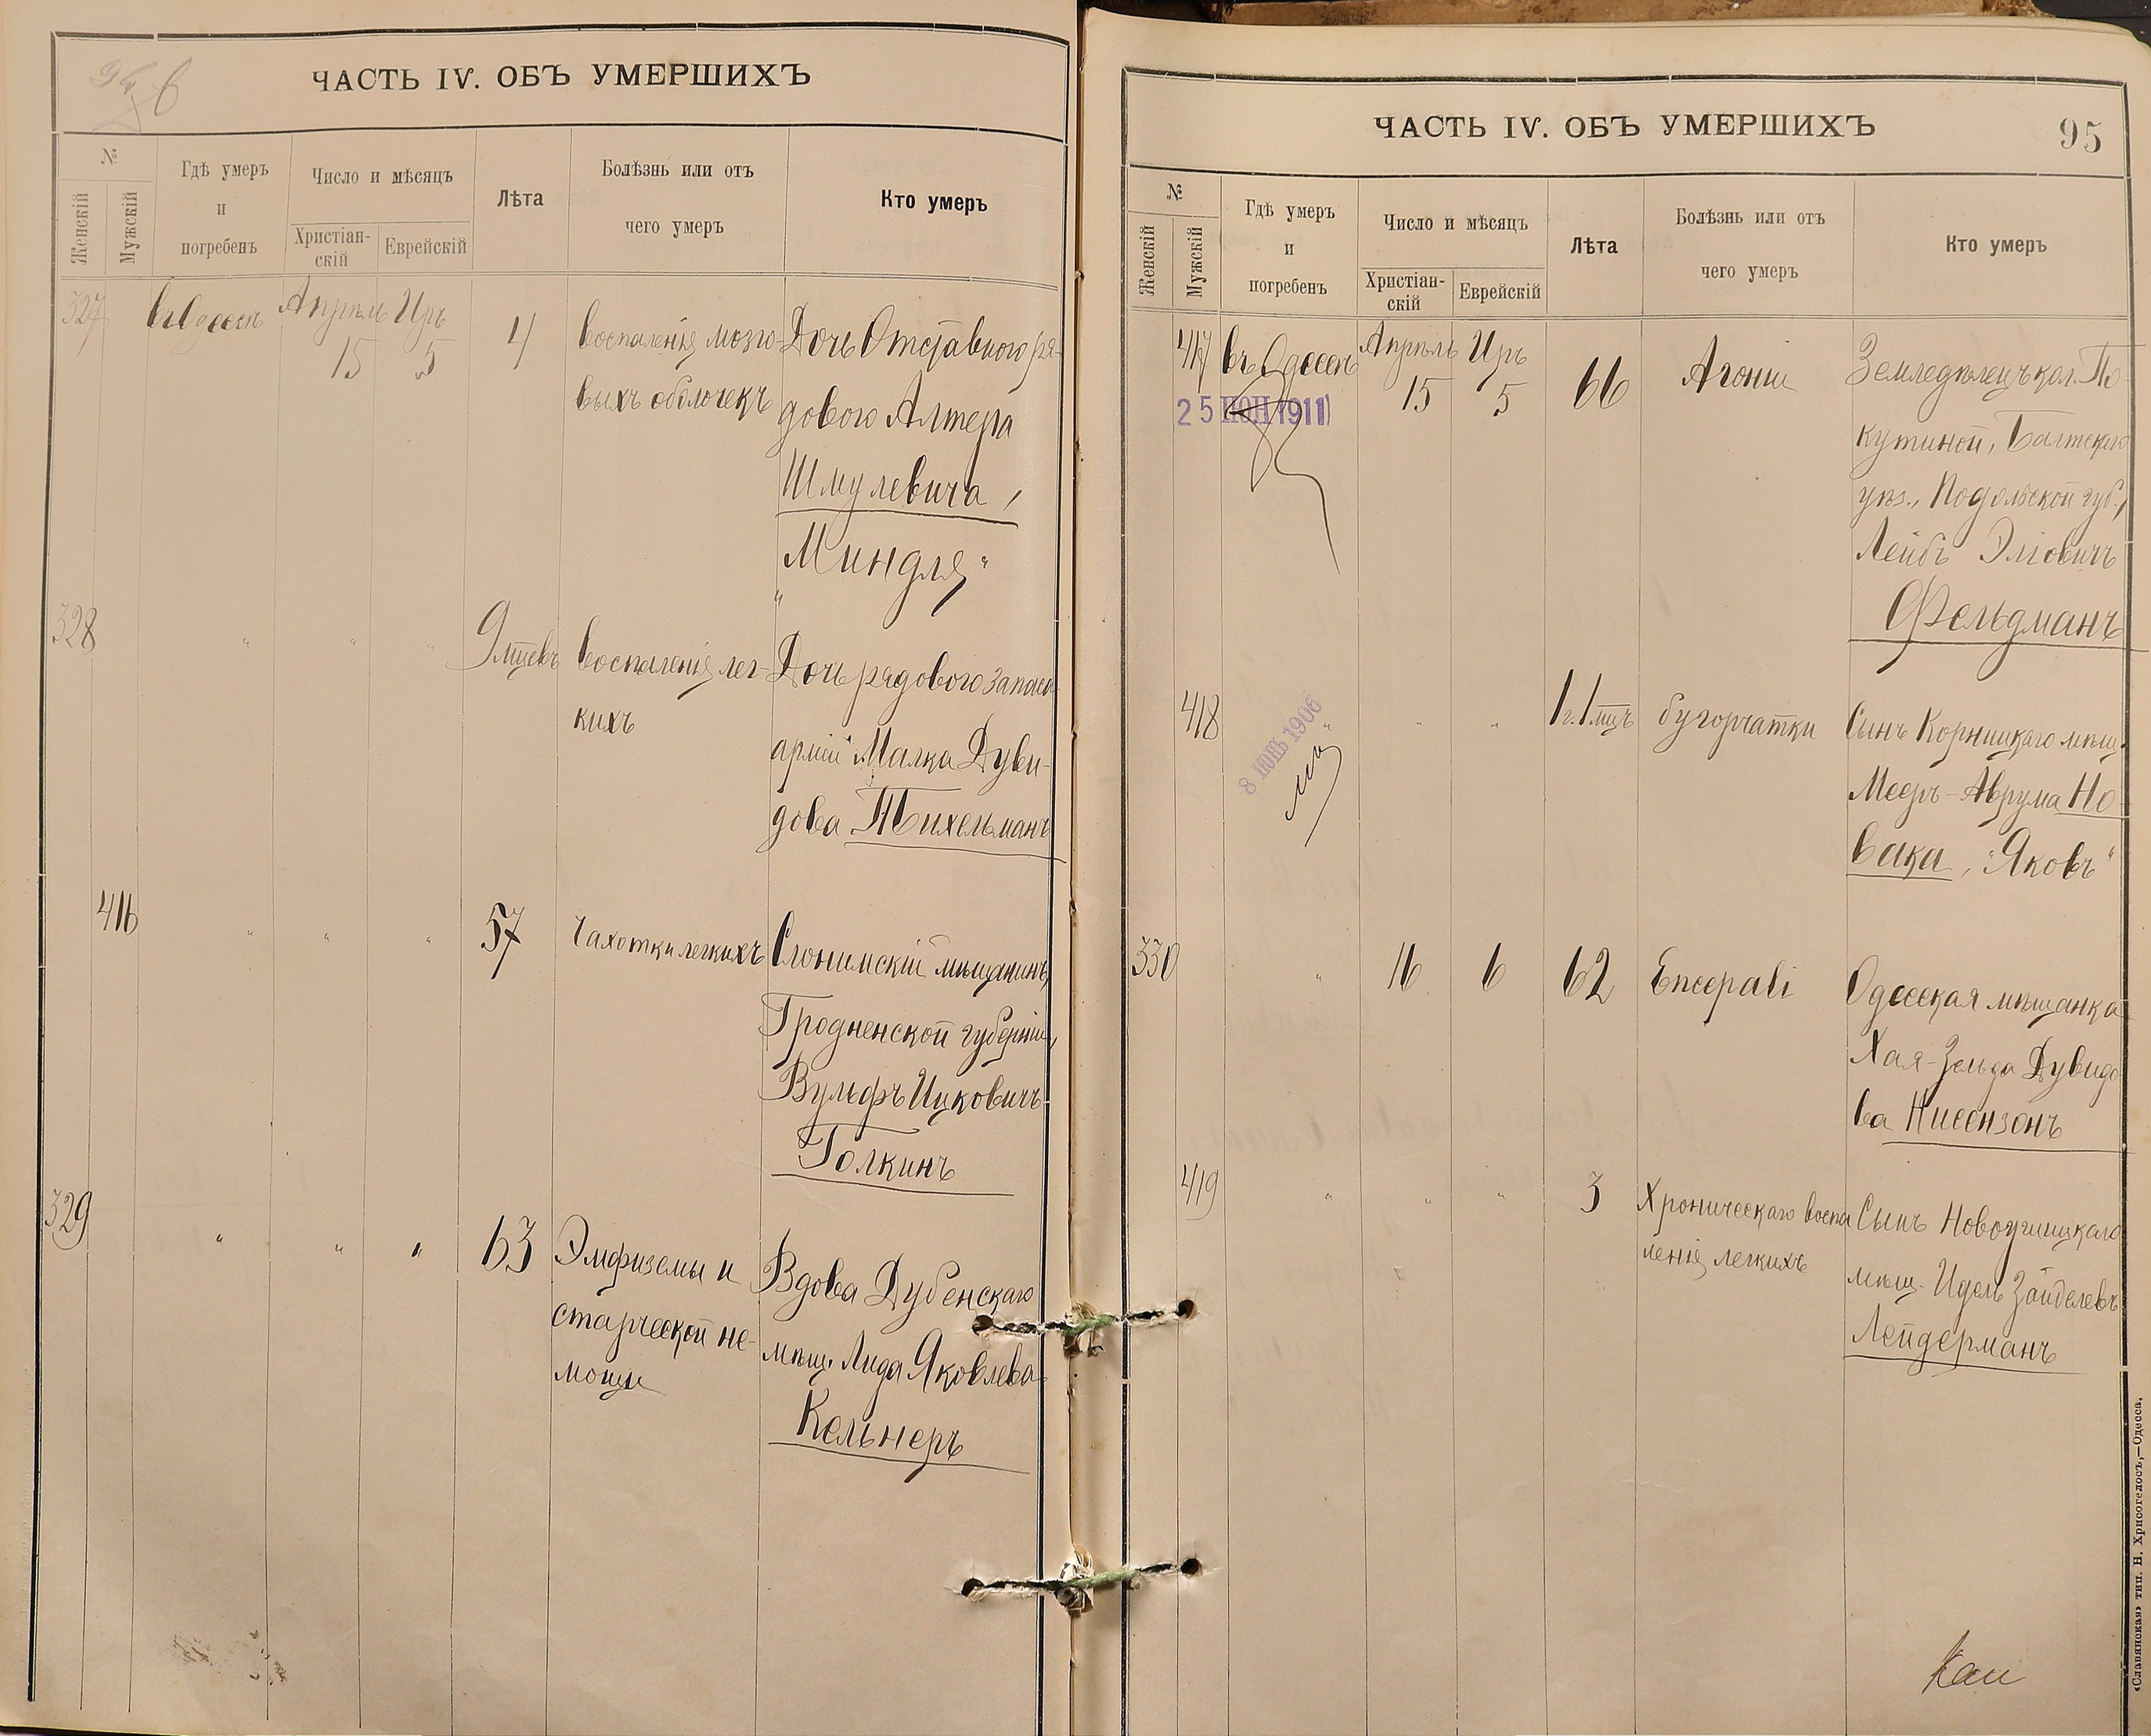 ЧАСТЬ IV. ОБЪ УМЕРШИХЪ
№
Женскій
Мужскій
Гдѣ умеръ
и
погребенъ
Число и мѣсяцъ
Христіан-
скій
Еврейскій
Лѣта
Болѣзнь или отъ
чего умеръ
Кто умеръ
327 въ Одессѣ Апрѣль 15 Иръ 5 4
воспаленія мозго-
выхъ оболочекъ
Дочь Отставного ря-
дового Алтера
Шмулевича,
"Миндля"
328 " " " 9 мцевъ
воспаленія лег-
кихъ
Дочь рядового запаса
арміи Малка Дуви-
дова Тихельманъ
416 " " " 57
Чахотки легкихъ
Слонимскій мѣщанинъ,
Гродненской губерніи,
Вульфъ Ицковичъ
Голкинъ
329 " " " 63
Эмфиземы и
старческой не-
мощи
Вдова Дубенскаго
мѣщ. Лида Яковлева
Кельнеръ
ЧАСТЬ IV. ОБЪ УМЕРШИХЪ
95
№
Женскій
Мужскій
Гдѣ умеръ
и
погребенъ
Число и мѣсяцъ
Христіан-
скій
Еврейскій
Лѣта
Болѣзнь или отъ
чего умеръ
Кто умеръ
417 въ Одессѣ Апрѣль 15 Иръ 5 66
25 ІЮН 1911
Агоніи
Земледѣлецъ кол. По-
кутиной, Балтскаго
уѣз., Подольской губ.,
Лейбъ Эліовичъ
Фельдманъ
418 " " " 1 г. 1 мцъ
8 ІЮНЬ 1906
бугорчатки
Сынъ Корницкаго мѣщ.
Мееръ-Аврума Но-
вака, "Яковъ"
330 " 16 6 62
Encepali
Одесская мѣщанка
Хая-Зельда Дувидо-
ва Нисензонъ
419 " " " 3
Хроническаго воспа
ленія легкихъ
Сынъ Новоушицкаго
мѣщ. Идель Зайделевъ
Лейдерманъ
«Славянская» тип. Н. Хрисогелосъ,—Одесса.